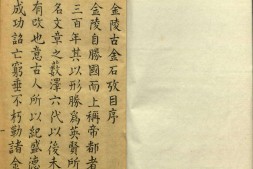 金陵古金石攷目序
金陵自勝國而上稱帝都者
三百年其以形勝為英賢所
名文章之藪澤六代以後未
有改也意古人所以紀盛德
成功詔亡窮垂不朽勒諸金